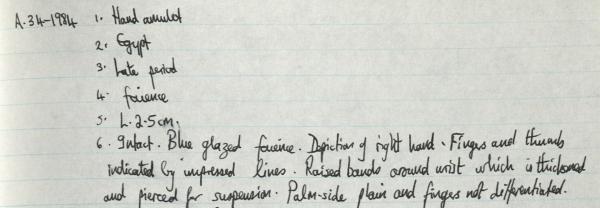 A.34-1984 1. Hand amulet
2. Egypt
3. Late period
4. faience
5. L. 2.5cm.
6. Intact. Blue glazed faience. Depiction of right hand. Fingers and thumb
indicated by impressed lines. Raised bands around wrist which is thickened
and pierced for suspension. Palm-side plain and fingers not differentiated.